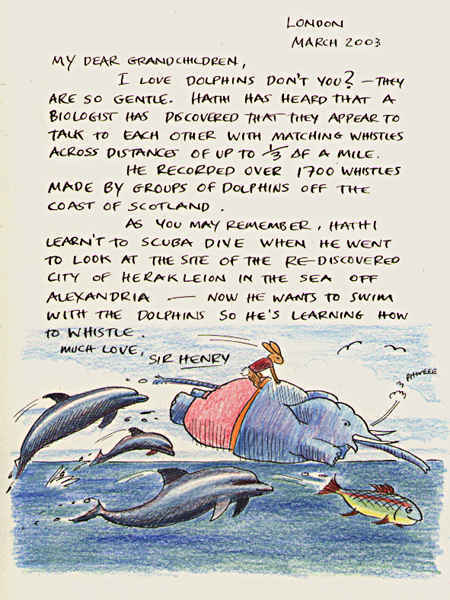 LONDON
MARCH 2003
MY DEAR GRANDCHILDREN,
I LOVE DOLPHINS DON'T YOU? – THEY
ARE SO GENTLE. HATHI HAS HEARD THAT A
BIOLOGIST HAS DISCOVERED THAT THEY APPEAR TO
TALK TO EACH OTHER WITH MATCHING WHISTLES
ACROSS DISTANCES OF UP TO 1/3 OF A MILE.
HE RECORDED OVER 1700 WHISTLES
MADE BY GROUPS OF DOLPHINS OFF THE
COAST OF SCOTLAND.
AS YOU MAY REMEMBER, HATHI
LEARN'T TO SCUBA DIVE WHEN HE WENT
TO LOOK AT THE SITE OF THE RE-DISCOVERED
CITY OF HERAKLEION IN THE SEA OFF
ALEXANDRIA — NOW HE WANTS TO SWIM
WITH THE DOLPHINS SO HE'S LEARNING HOW
TO WHISTLE.
MUCH LOVE,
SIR HENRY